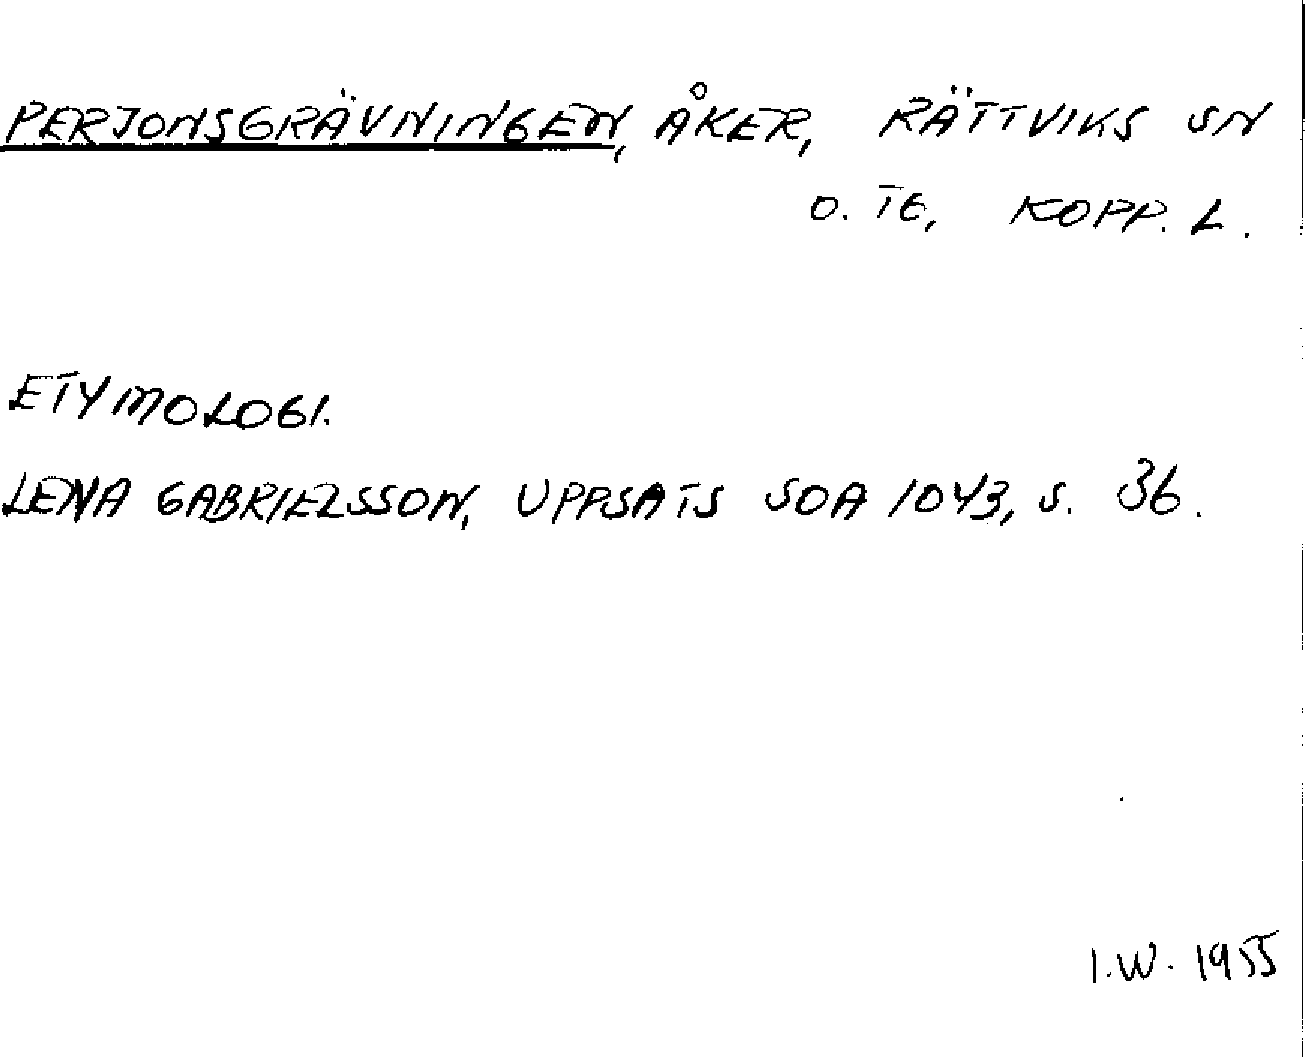 PERJONSGRÄVNINGEN, ÅKER, RÄTTVIKS SN
O. TG, KOPP. L.
ETYMOLOGI.
LENA GABRIELSSON, UPPSATS SOA 1043, S. 36.
I.W. 1955